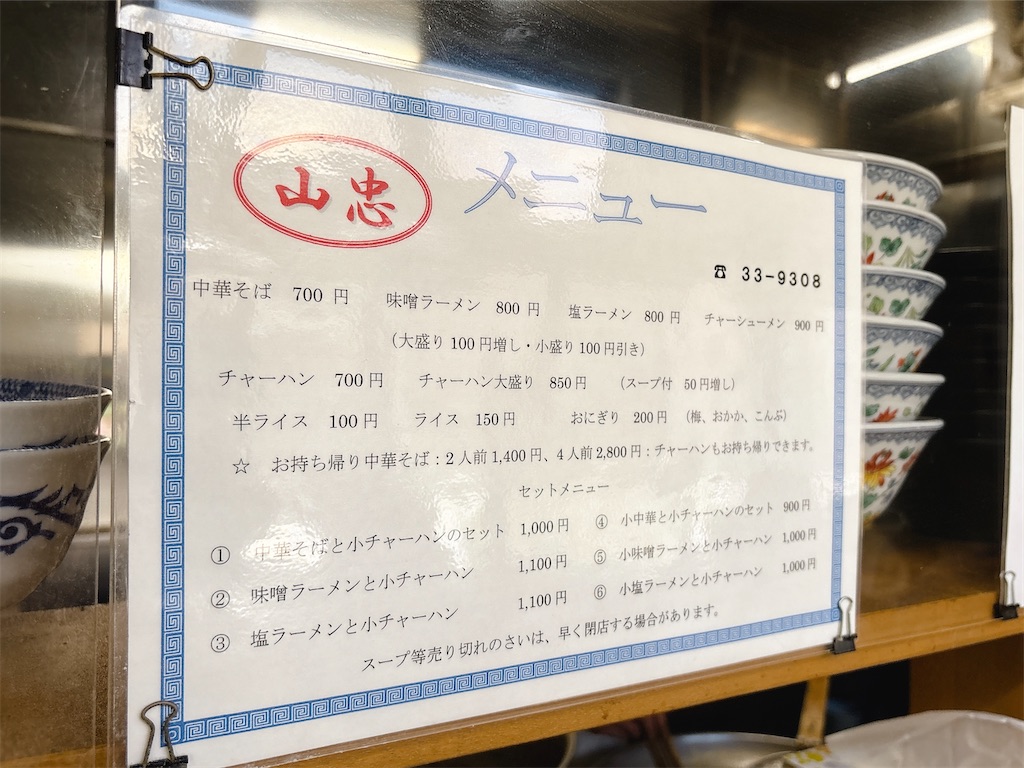 山忠 メニュー
☎ 33-9308
中華そば 700円 味噌ラーメン 800円 塩ラーメン 800円 チャーシューメン 900円
（大盛り100円増し・小盛り100円引き）
チャーハン 700円 チャーハン大盛り 850円 （スープ付 50円増し）
半ライス 100円 ライス 150円 おにぎり 200円 （梅、おかか、こんぶ）
☆ お持ち帰り中華そば：2人前1,400円、4人前2,800円：チャーハンもお持ち帰りできます。
セットメニュー
① 中華そばと小チャーハンのセット 1,000円 ④ 小中華と小チャーハンのセット 900円
② 味噌ラーメンと小チャーハン 1,100円 ⑤ 小味噌ラーメンと小チャーハン 1,000円
③ 塩ラーメンと小チャーハン 1,100円 ⑥ 小塩ラーメンと小チャーハン 1,000円
スープ等売り切れのさいは、早く閉店する場合があります。